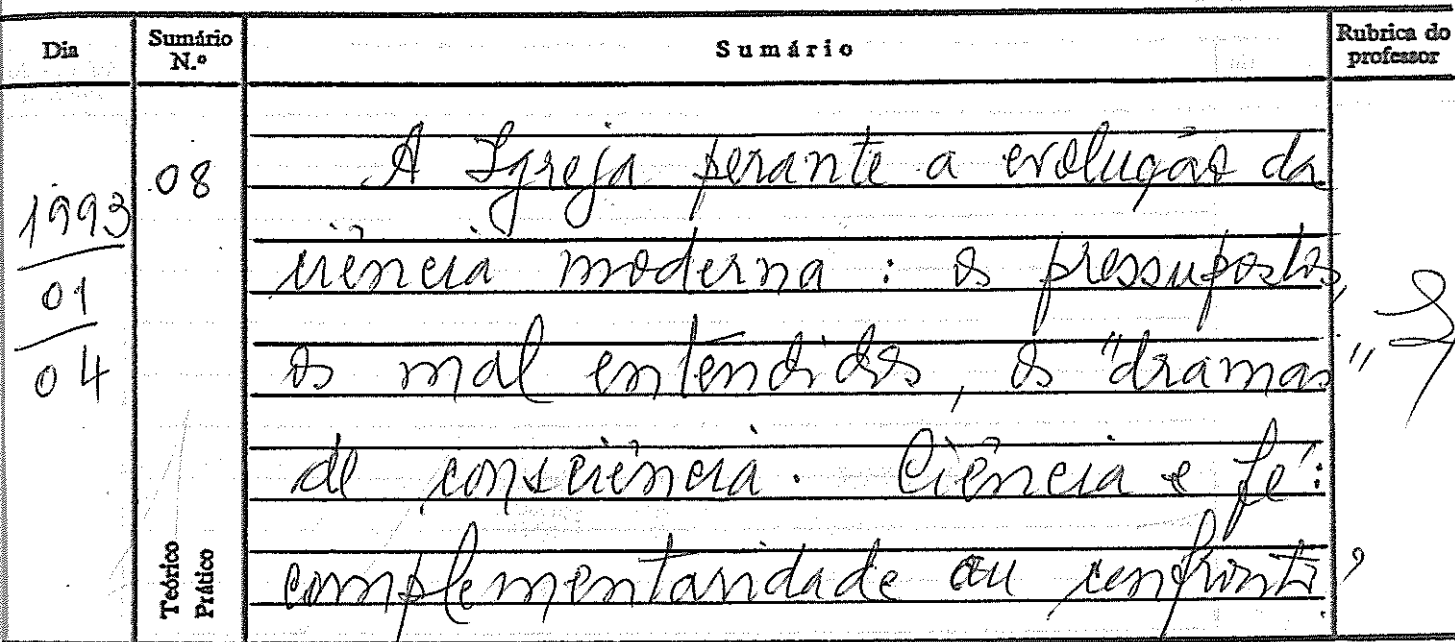 Dia Sumário N.º Sumário Rubrica do professor
1993
01
04
08
A Igreja perante a evolução da
ciência moderna : os pressupostos,
os mal entendidos, os "dramas"
de consciência. Ciência e fé:
complementaridade ou confronto?
Teórico
Prático